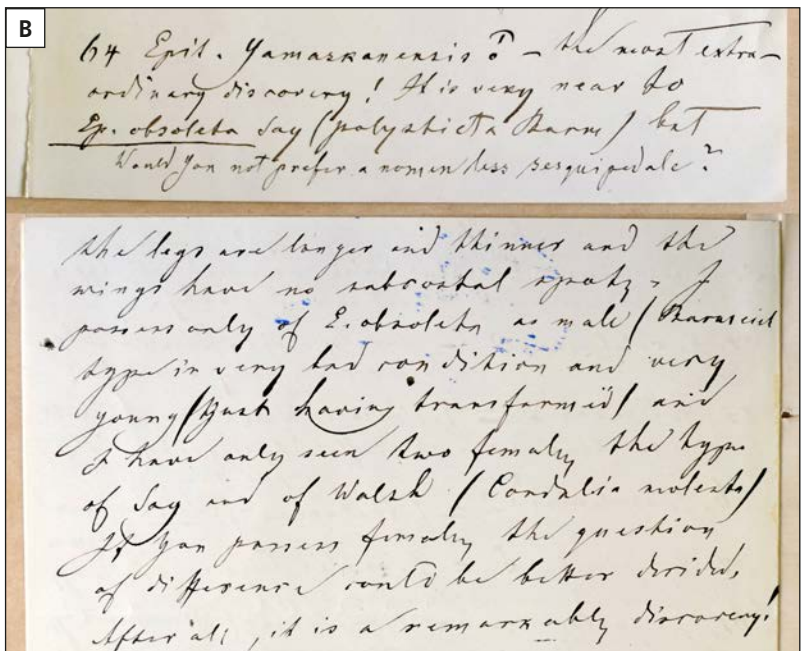 B
64 Epit. Yamaskanensis ♂ – the most extra-
ordinary discovery! It is very near to
Ep. obsoleta Say (polysticta Burm) but
Would you not prefer a nomen less sesquipedale?
the legs are longer and thinner and the
wings have no subcostal spots. I
possess only of E. obsoleta as male (Burmeist
type in very bad condition and very
young (just having transformed) and
I have only seen two females the type
of Say and of Walsh (Cordulia molesta)
If you possess females the question
of difference could be better decided.
After all, it is a remarkably discovery!